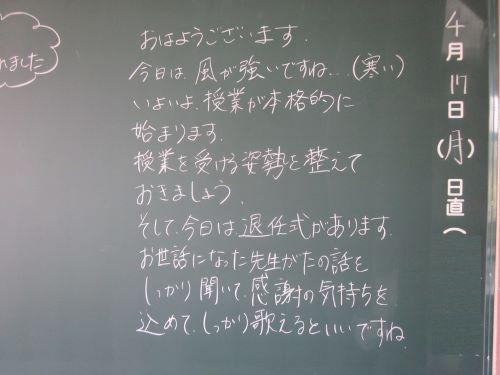 おはようございます.
今日は、風が強いですね…(寒い)
いよいよ、授業が本格的に
始まります.
授業を受ける姿勢を整えて
おきましょう.
そして、今日は退任式があります.
お世話になった先生がたの話を
しっかり聞いて、感謝の気持ちを
込めて、しっかり歌えるといいですね.
4月17日(月)日直(
れました